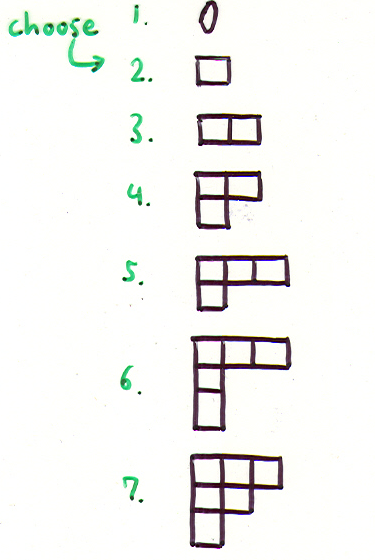 choose
1. 0
2.
3.
4.
5.
6.
7.